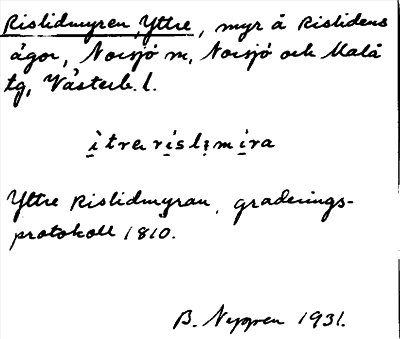 Rislidmyren, Yttre, myr å Rislidens
ägor, Norsjö sn, Norsjö och Malå
tg, Västerb. l.
i̱trɐri̱slm̥i̱ra
Yttre Rislidmyran, graderings-
protokoll 1810.
B. Neppen 1931.